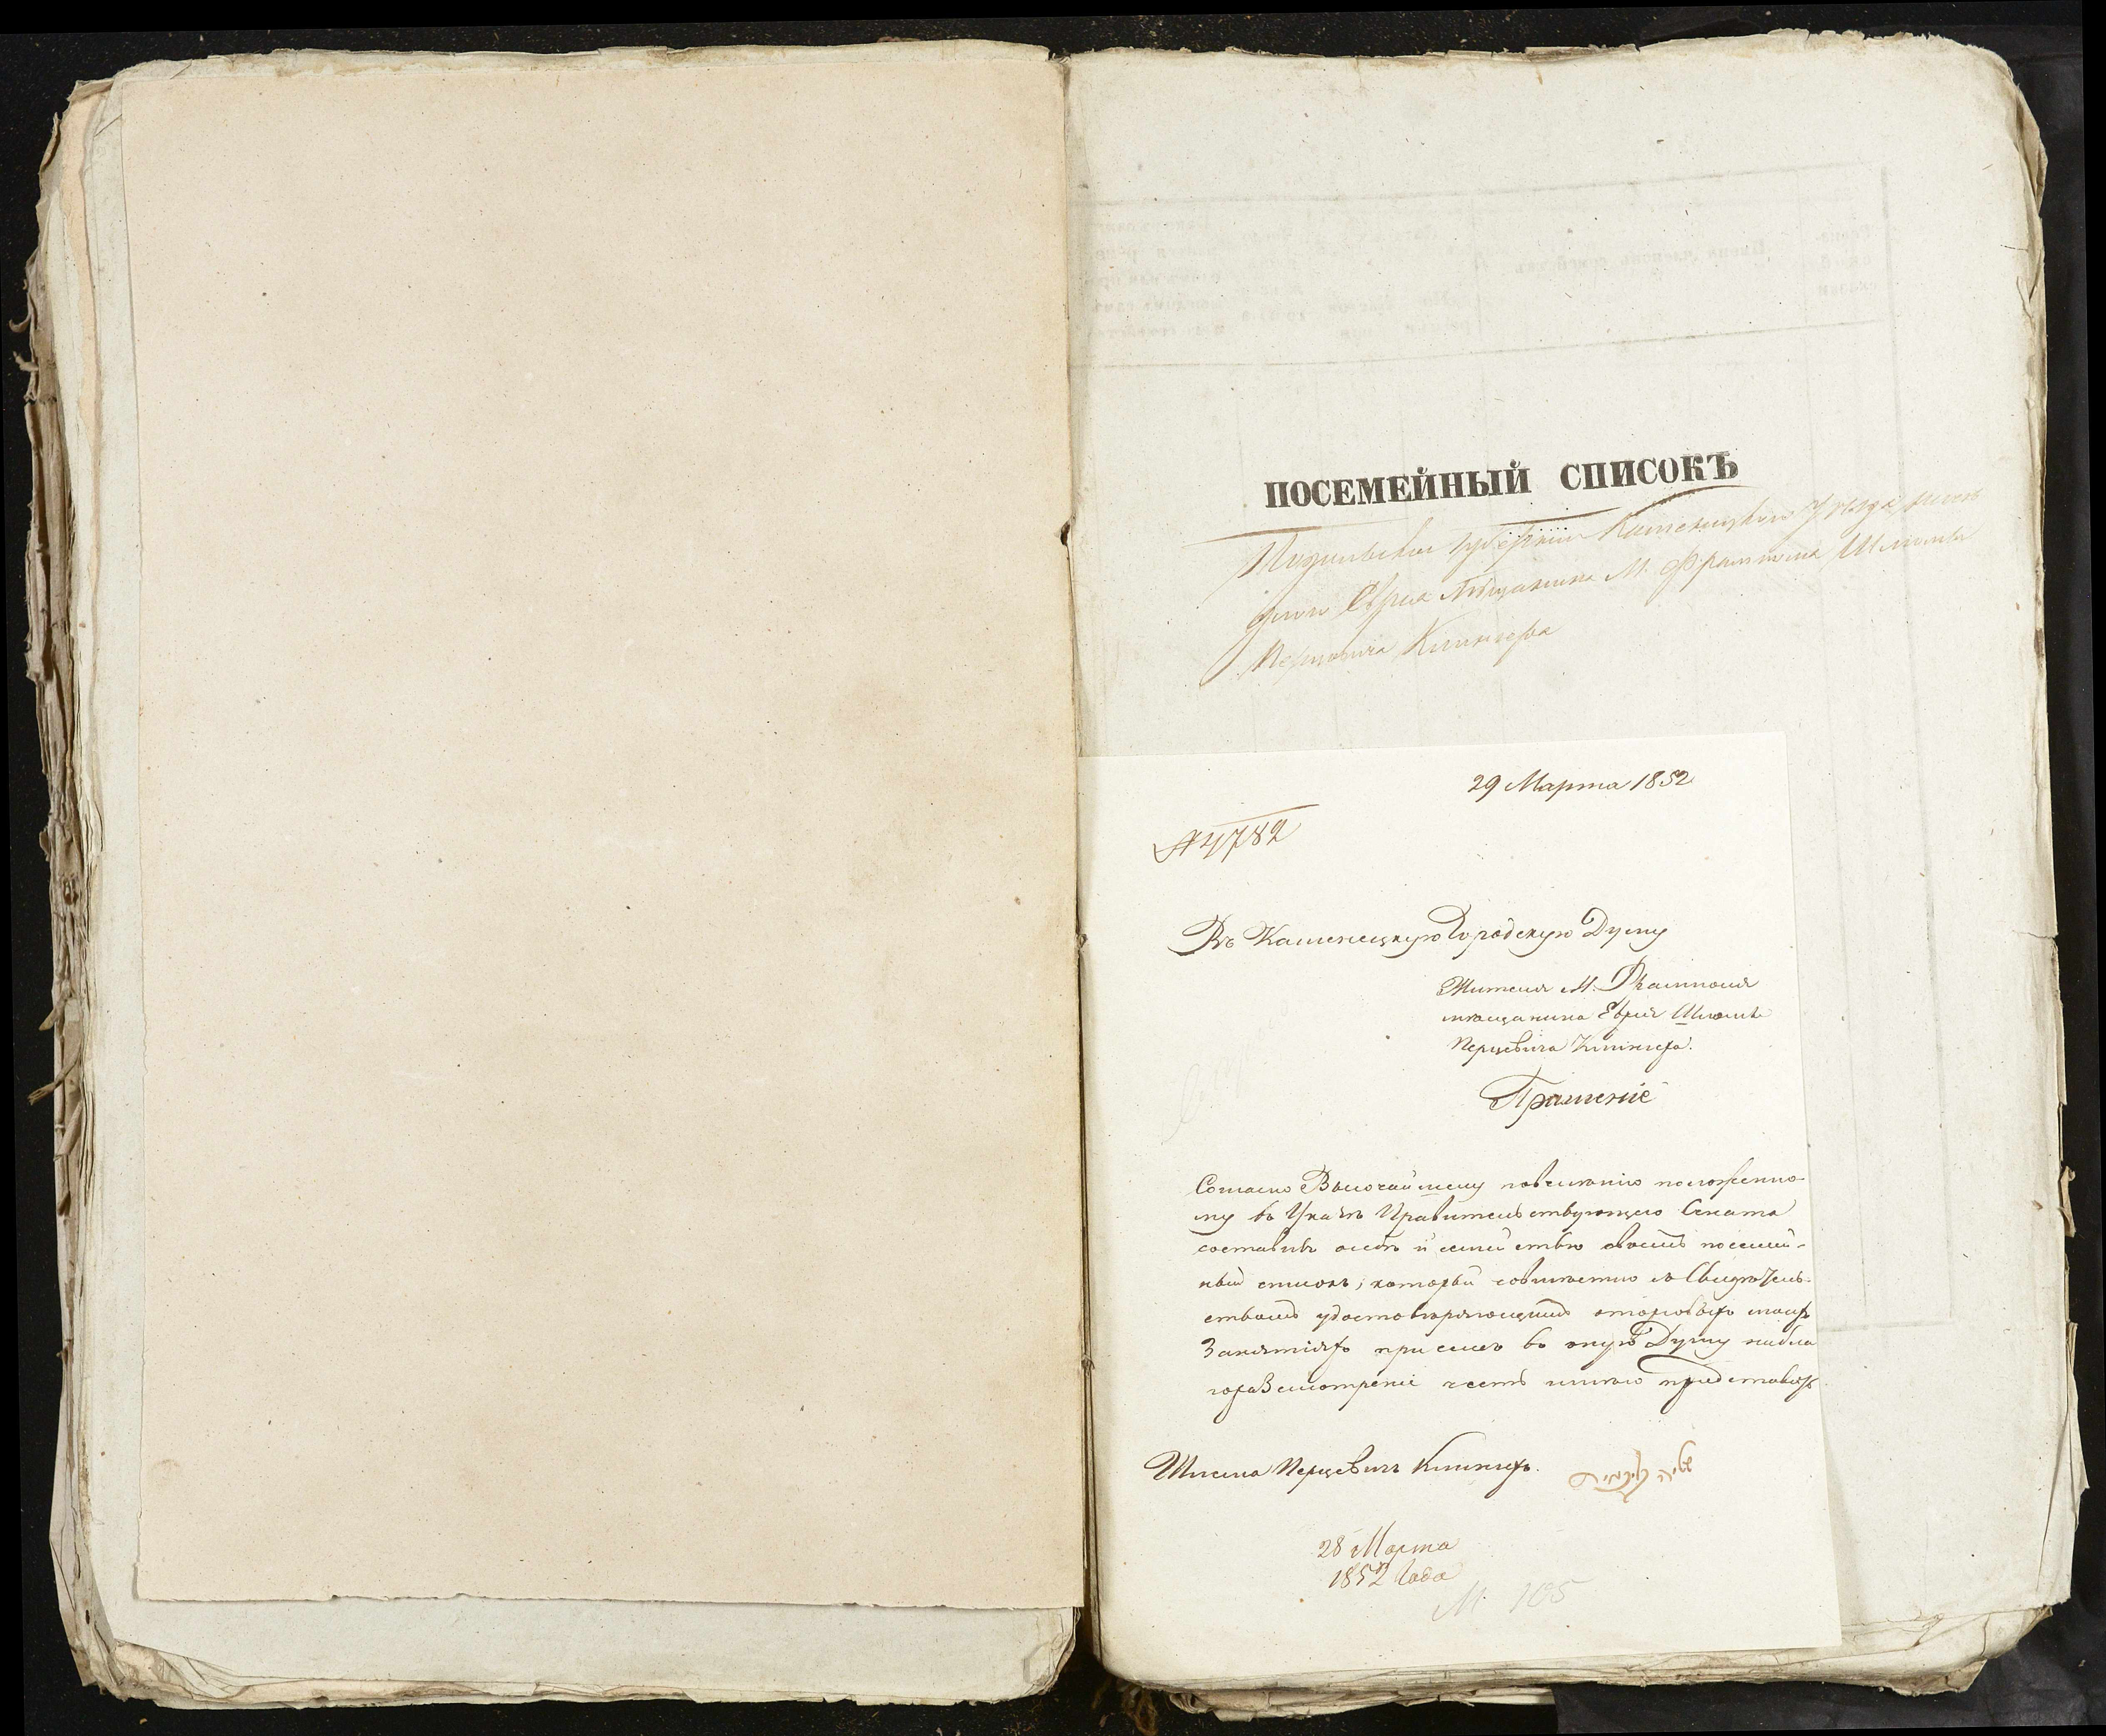 ПОСЕМЕЙНЫЙ СПИСОКЪ
Подольской Губерніи Каменецкого Уѣзда
Еврея Мѣщанина М. Фрамполя Шлiомы
Перцовича Клингера
29 Марта 1852
№ 4782
Въ Каменецкую Городскую Думу
Жителя М. Фрамполя
мѣщанина Еврея Шлiомы
Перцевича Клингера.
Прошеніе
Согласно Высочайшему повелѣнію положенно-
му въ Указѣ Правительствующего Сената
составивъ о себѣ и семействѣ своемъ посемей-
ный списокъ, который совмѣстно съ Свидѣтель-
ствомъ удостовѣряющимъ о торговыхъ моихъ
Занятіяхъ при семъ въ оную Думу на бла-
горазсмотреніе честь имѣю представить
Шлема Перцевичъ Клингеръ.
28 Марта
1852 Года
М 105